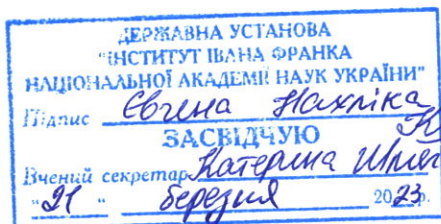 ДЕРЖАВНА УСТАНОВА
"ІНСТИТУТ ІВАНА ФРАНКА
НАЦІОНАЛЬНОЇ АКАДЕМІЇ НАУК УКРАЇНИ"
Підпис Євгена Нахліка
ЗАСВІДЧУЮ
Вчений секретар Катерина
"21" березня 2023р.